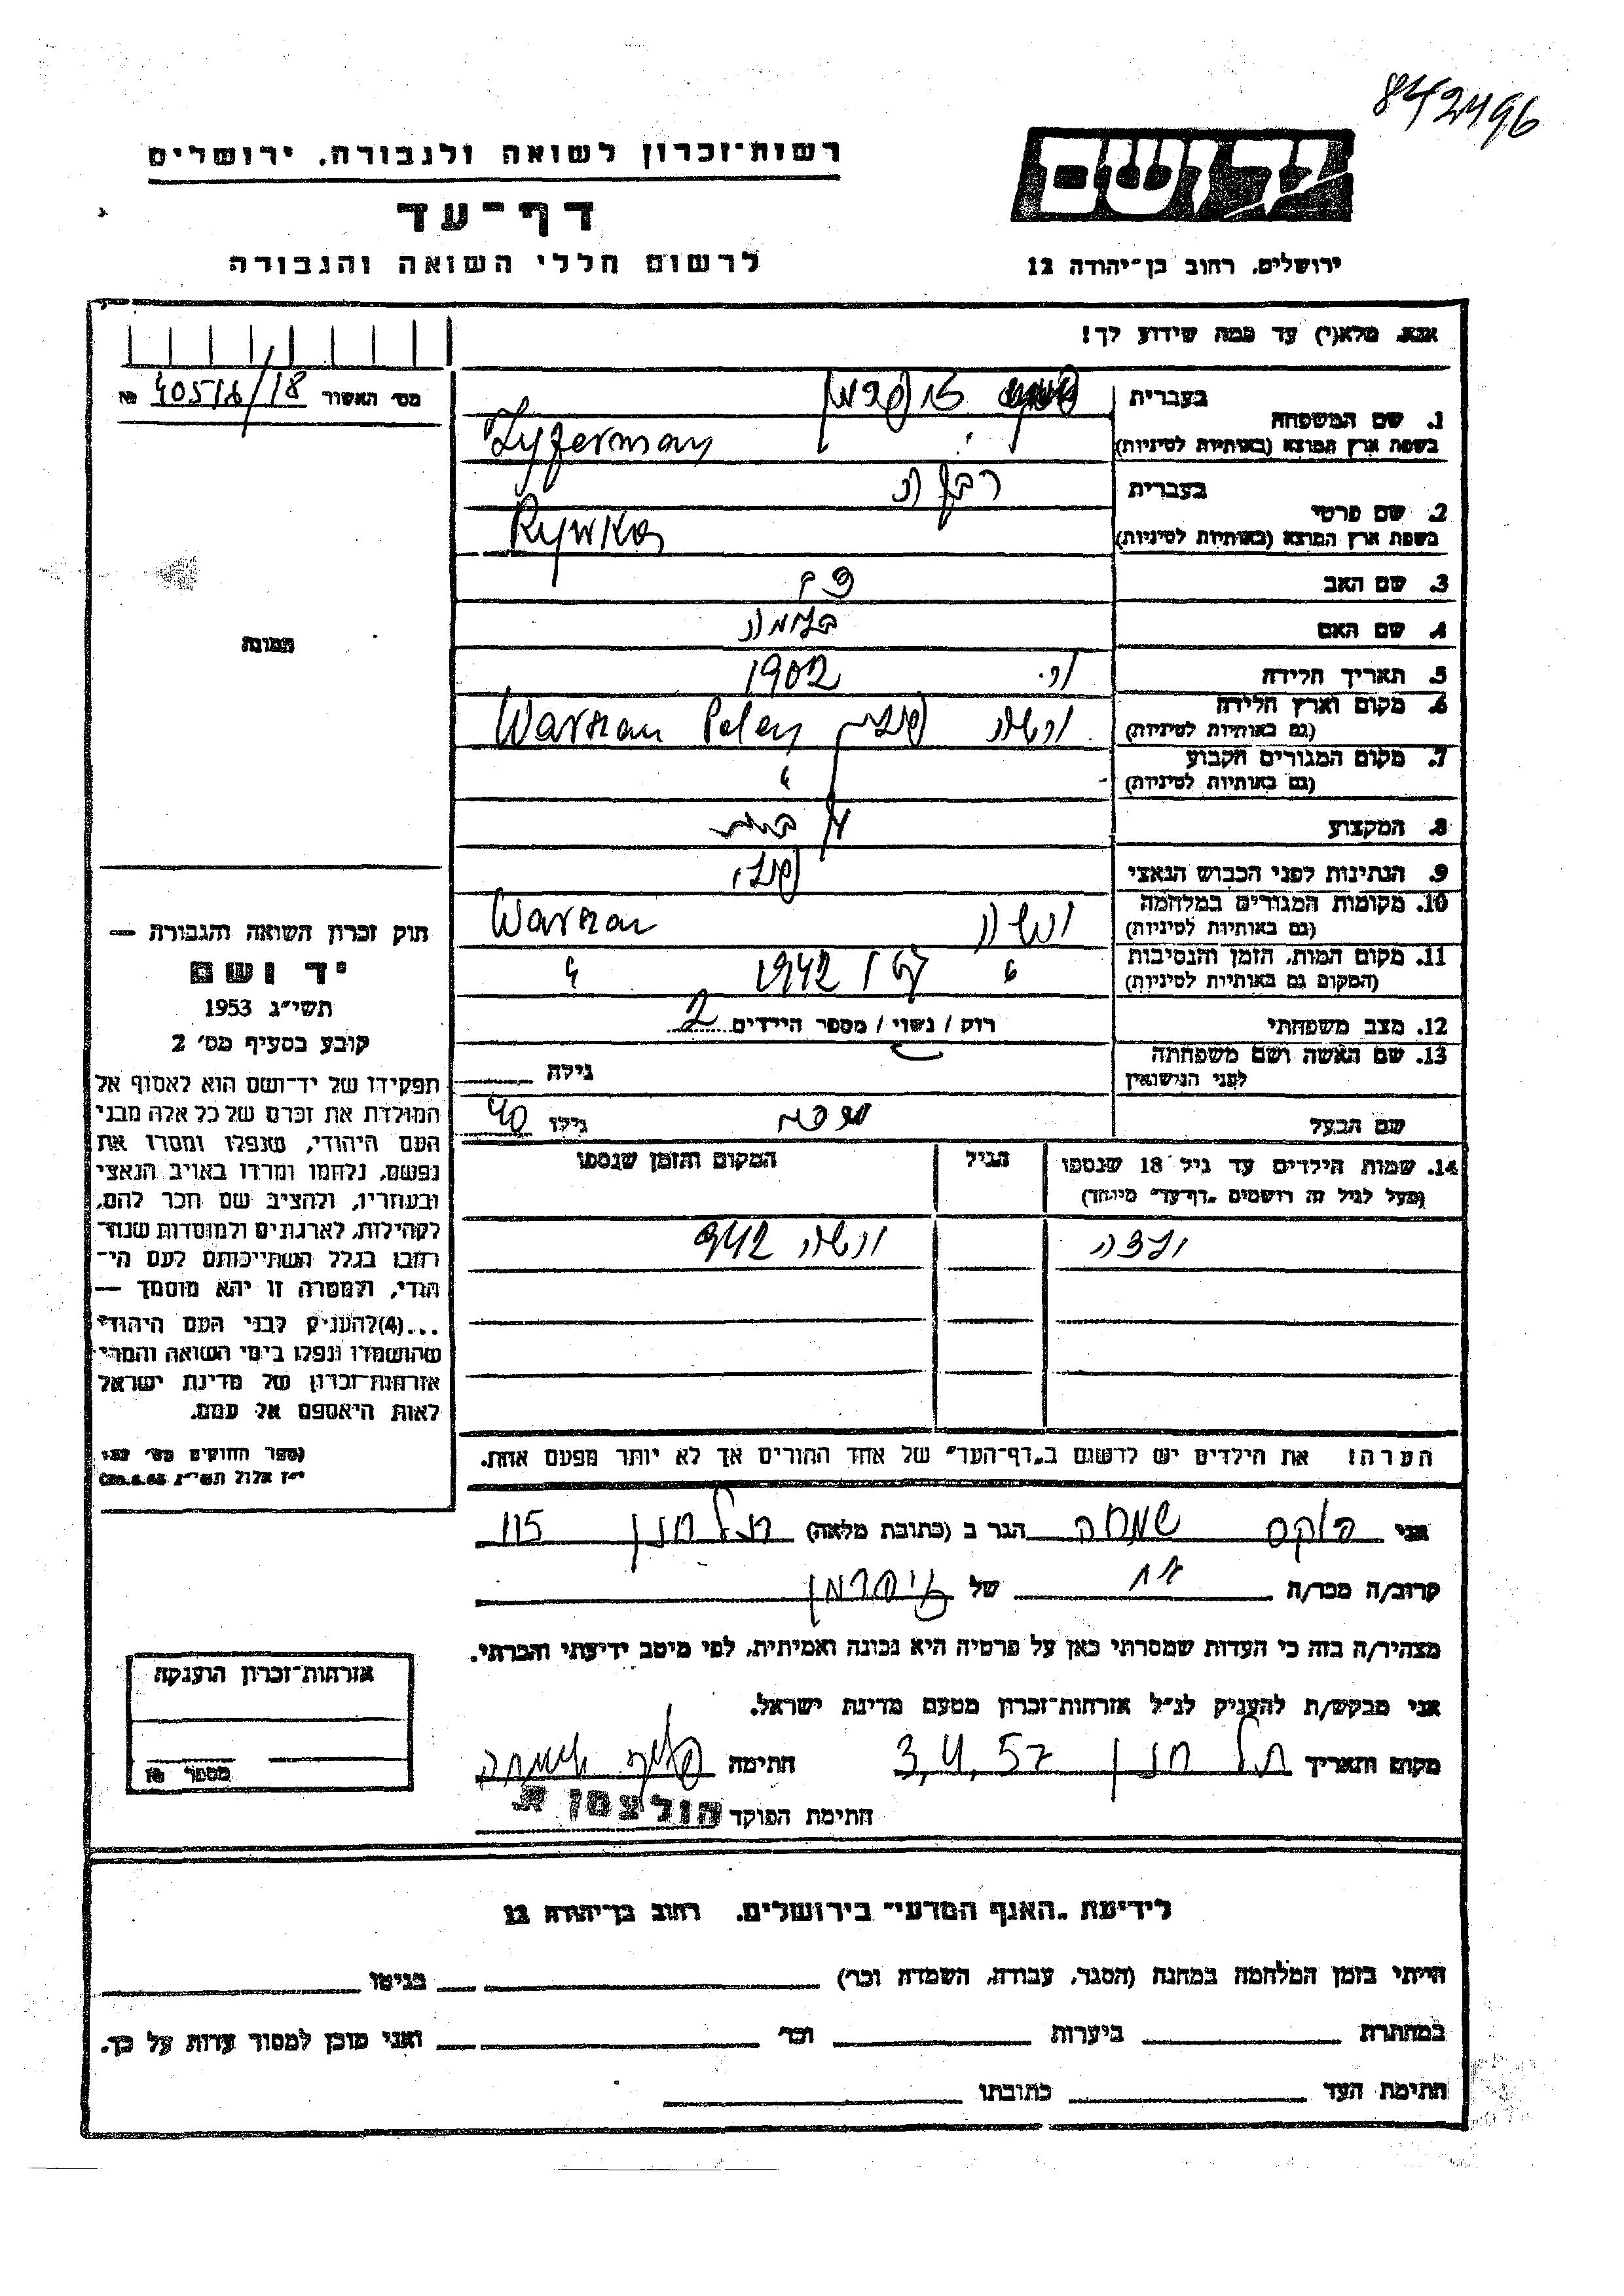 842496
יד ושם
רשות-זכרון לשואה ולגבורה, ירושלים
דף-עד
ירושלים, רחוב בן-יהודה 12
לרשום חללי השואה והגבורה
אנא, מלא(י) עד כמה שידוע לך!
מס' האשור
1. שם המשפחה
בעברית
בשפת ארץ המוצא (באותיות לטיניות) Zyferman
2. שם פרטי
בעברית רבקה
בשפת ארץ המוצא (באותיות לטיניות) Rywka
3. שם האב
4. שם האם
5. תאריך הלידה 1902
6. מקום וארץ הלידה
(גם באותיות לטיניות) ורשה פולין Warszau Polen
7. מקום המגורים הקבוע
(גם באותיות לטיניות) "
8. המקצוע
9. הנתינות לפני הכבוש הנאצי פולני
10. מקומות המגורים במלחמה
(גם באותיות לטיניות) ורשה Warszau
11. מקום המות, הזמן והנסיבות
(המקום גם באותיות לטיניות) " 1942 "
12. מצב משפחתי רווק / נשוי / מספר הילדים 2
13. שם האשה ושם משפחתה
לפני הנישואין גילה
שם הבעל גילו 40
14. שמות הילדים עד גיל 18 שנספו
(מעל לגיל זה רושמים "דף-עד" מיוחד)
הגיל
המקום והזמן שנספו
ורשה 942
הערה! את הילדים יש לרשום ב"דף-העד" של אחד ההורים אך לא יותר מפעם אחת.
תמונה
חוק זכרון השואה והגבורה —
יד ושם
תשי"ג 1953
קובע בסעיף מס' 2
תפקידו של יד-ושם הוא לאסוף אל
המולדת את זכרם של כל אלה מבני
העם היהודי, שנפלו ומסרו את
נפשם, נלחמו ומרדו באויב הנאצי
ובעוזריו, ולהציב שם וזכר להם,
לקהילות, לארגונים ולמוסדות שנח-
רבו בגלל השתייכותם לעם הי-
הודי, ולמטרה זו יהא מוסמך —
...(4)להעניק לבני העם היהודי
שהושמדו ונפלו בימי השואה והמרי
אזרחות-זכרון של מדינת ישראל
לאות היאספם אל עמם.
(ספר החוקים מס' 132
י"ז אלול תשי"ג
אני שמחה הגר ב (כתובת מלאה) תל חנן 115
קרוב/ה מכר/ה של
מצהיר/ה בזה כי העדות שמסרתי כאן על פרטיה היא נכונה ואמיתית, לפי מיטב ידיעתי והכרתי.
אני מבקש/ת להעניק לנ"ל אזרחות-זכרון מטעם מדינת ישראל.
מקום ותאריך תל חנן 3,4,57 חתימה
חתימת הפוקד
אזרחות-זכרון הוענקה
מספר
לידיעת "האגף המדעי" בירושלים, רחוב בן-יהודה 12
הייתי בזמן המלחמה במחנה (הסגר, עבודה, השמדה וכו') בגיטו
במחתרת ביערות וכו' ואני מוכן למסור עדות על כך.
חתימת העד כתובתו